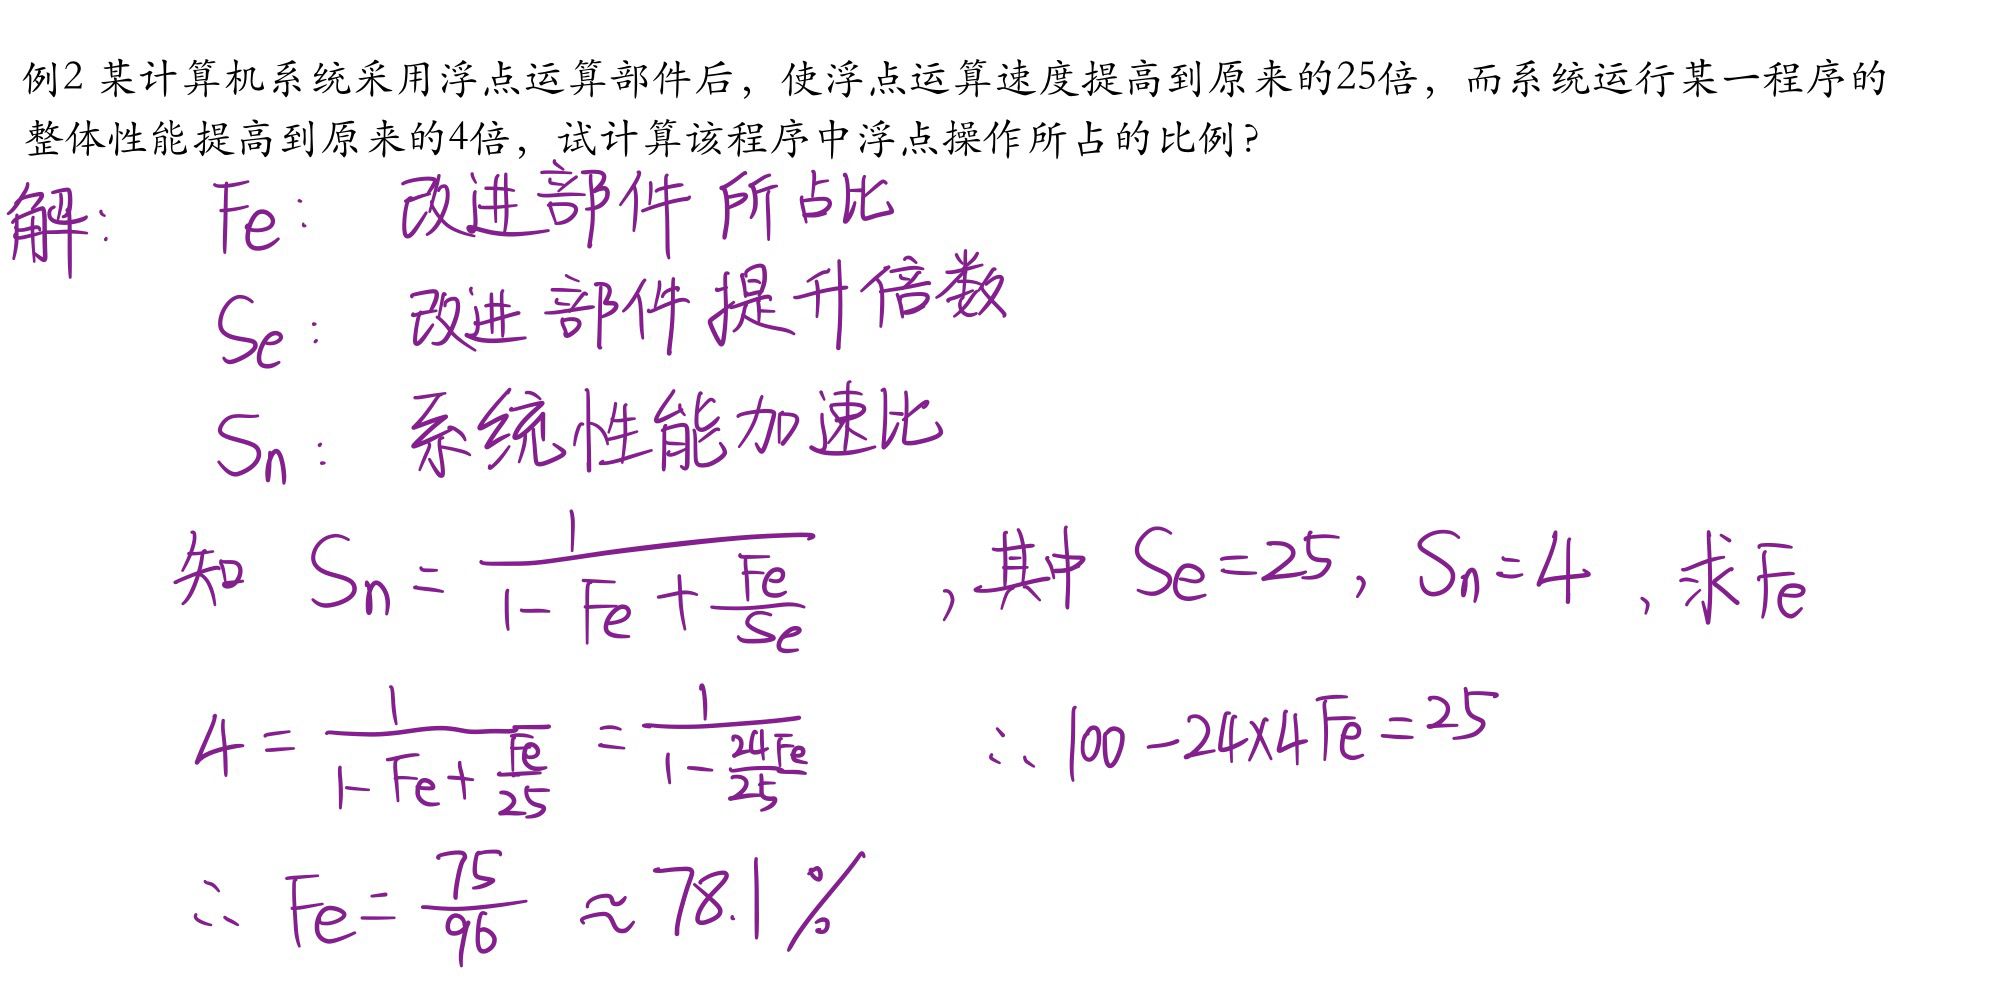 例2 某计算机系统采用浮点运算部件后，使浮点运算速度提高到原来的25倍，而系统运行某一程序的
整体性能提高到原来的4倍，试计算该程序中浮点操作所占的比例?
解: Fe: 改进部件所占比
Se: 改进部件提升倍数
Sn: 系统性能加速比
知 Sn = 1/(1-Fe+Fe/Se) ,其中 Se=25, Sn=4 ,求Fe
4 = 1/(1-Fe+Fe/25) = 1/(1-24Fe/25) ∴ 100-24×4Fe=25
∴ Fe = 75/96 ≈ 78.1%